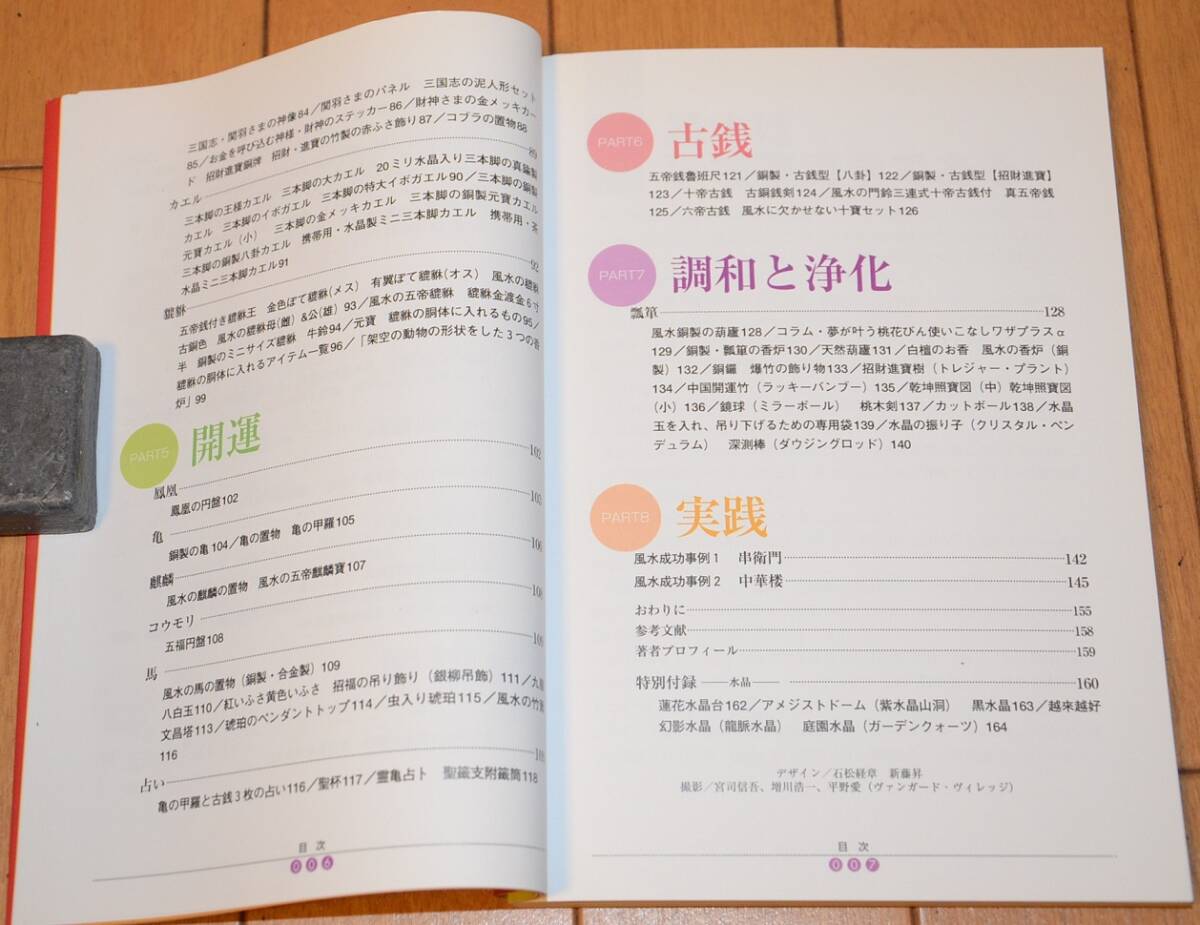 三国志・関羽さまの神像84／関羽さまのパネル　三国志の泥人形セット
85／お金を呼び込む神様・財神のステッカー86／財神さまの金メッキカー
ド　招財進寶銅牌　招財・進寶の竹製の赤ふさ飾り87／コブラの置物88
カエル 89
三本脚の王様カエル　三本脚の大カエル　20ミリ水晶入り三本脚の真鍮製
カエル　三本脚のイボガエル　三本脚の特大イボガエル90／三本脚の銅製
元寶カエル（小）　三本脚の金メッキカエル　三本脚の銅製元寶カエル
三本脚の銅製八卦カエル　携帯用・水晶製ミニ三本脚カエル　携帯用・茶
水晶ミニ三本脚カエル91
貔貅 92
五帝銭付き貔貅王　金色ぼて貔貅（メス）　有翼ぼて貔貅（オス）　風水の貔貅
古銅色　風水の貔貅母（雌）＆公（雄）93／風水の五帝貔貅　貔貅金渡金6寸
半　銅製のミニサイズ貔貅　牛鈴94／元寶　貔貅の胴体に入れるもの95／
貔貅の胴体に入れるアイテム一覧96／「架空の動物の形状をした3つの香
炉」99
PART5 開運
鳳凰 102
鳳凰の円盤102
亀 103
銅製の亀104／亀の置物　亀の甲羅105
麒麟 106
風水の麒麟の置物　風水の五帝麒麟寶107
コウモリ 108
五福円盤108
馬 109
風水の馬の置物（銅製・合金製）109
八白玉110／紅いふさ黄色いふさ　招福の吊り飾り（銀柳吊飾）111／九層
文昌塔113／琥珀のペンダントトップ114／虫入り琥珀115／風水の竹
116
占い
亀の甲羅と古銭3枚の占い116／聖杯117／靈亀占ト　聖籤支附籤筒118
目次
006
PART6 古銭
五帝銭魯班尺121／銅製・古銭型【八卦】122／銅製・古銭型【招財進寶】
123／十帝古銭　古銅銭剣124／風水の門鈴三連式十帝古銭付　真五帝銭
125／六帝古銭　風水に欠かせない十寶セット126
PART7 調和と浄化
瓢箪 128
風水銅製の葫蘆128／コラム・夢が叶う桃花びん使いこなしワザプラスα
129／銅製・瓢箪の香炉130／天然葫蘆131／白檀のお香　風水の香炉（銅
製）132／銅鑼　爆竹の飾り物133／招財進寶樹（トレジャー・プラント）
134／中国開運竹（ラッキーバンブー）135／乾坤照寶図（中）乾坤照寶図
（小）136／鏡球（ミラーボール）　桃木剣137／カットボール138／水晶
玉を入れ、吊り下げるための専用袋139／水晶の振り子（クリスタル・ペン
デュラム）　深測棒（ダウジングロッド）140
PART8 実践
風水成功事例1　串衛門 142
風水成功事例2　中華楼 145
おわりに 155
参考文献 158
著者プロフィール 159
特別付録 ——水晶—— 160
蓮花水晶台162／アメジストドーム（紫水晶山洞）　黒水晶163／越来越好
幻影水晶（龍脈水晶）　庭園水晶（ガーデンクォーツ）164
デザイン／石松経章　新藤昇
撮影／宮司信吾、増川浩一、平野愛（ヴァンガード・ヴィレッジ）
目次
007